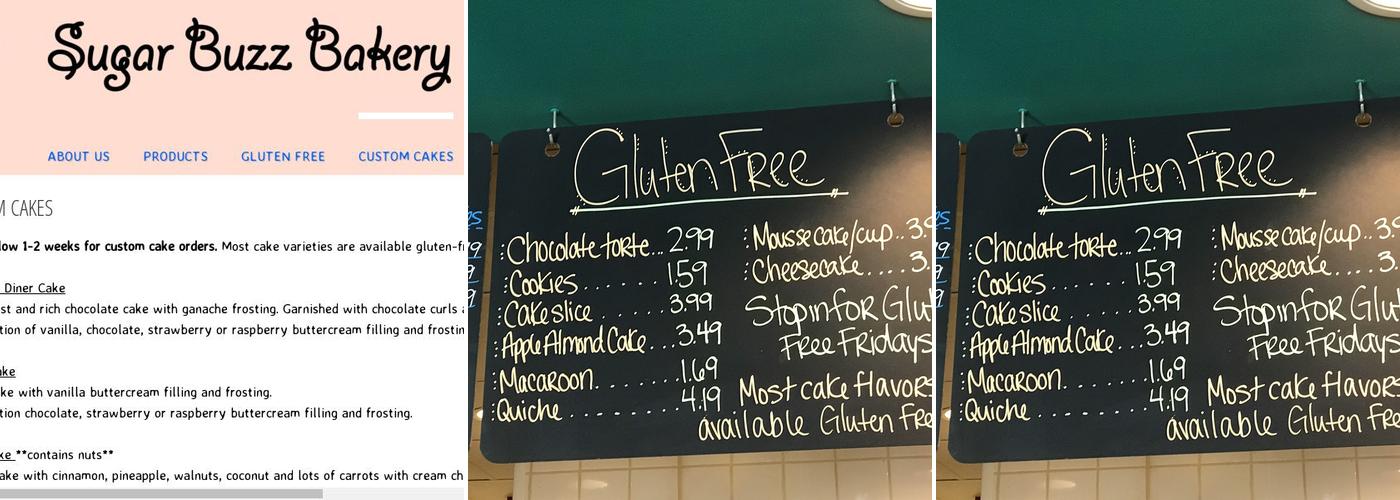 Sugar Buzz Bakery
ABOUT US PRODUCTS GLUTEN FREE CUSTOM CAKES
CAKES
1-2 weeks for custom cake orders. Most cake varieties are available
Diner Cake
and rich chocolate cake with ganache frosting. Garnished with chocolate curls
of vanilla, chocolate, strawberry or raspberry buttercream filling and
with vanilla buttercream filling and frosting.
chocolate, strawberry or raspberry buttercream filling and frosting.
**contains nuts**
with cinnamon, pineapple, walnuts, coconut and lots of carrots with cream
Gluten Free
:Chocolate torte... 2.99
:Cookies...... 1.59
:Cake slice ...... 3.99
:Apple Almond Cake... 3.49
:Macaroon....... 1.69
:Quiche......... 4.19
:Mousse cake/cup..
:Cheesecake....
Stop in for
Free Fridays
Most cake flavors
available Gluten
Gluten Free
:Chocolate torte... 2.99
:Cookies...... 1.59
:Cake slice ...... 3.99
:Apple Almond Cake... 3.49
:Macaroon....... 1.69
:Quiche......... 4.19
:Mousse cake/cup..
:Cheesecake....
Stop in for
Free Fridays
Most cake flavors
available Gluten